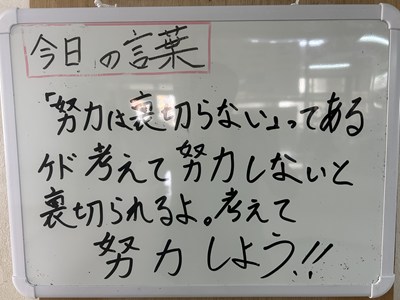 今日の言葉
「努力は裏切らない」ってある
ケド考えて努力しないと
裏切られるよ。考えて
努力しよう!!